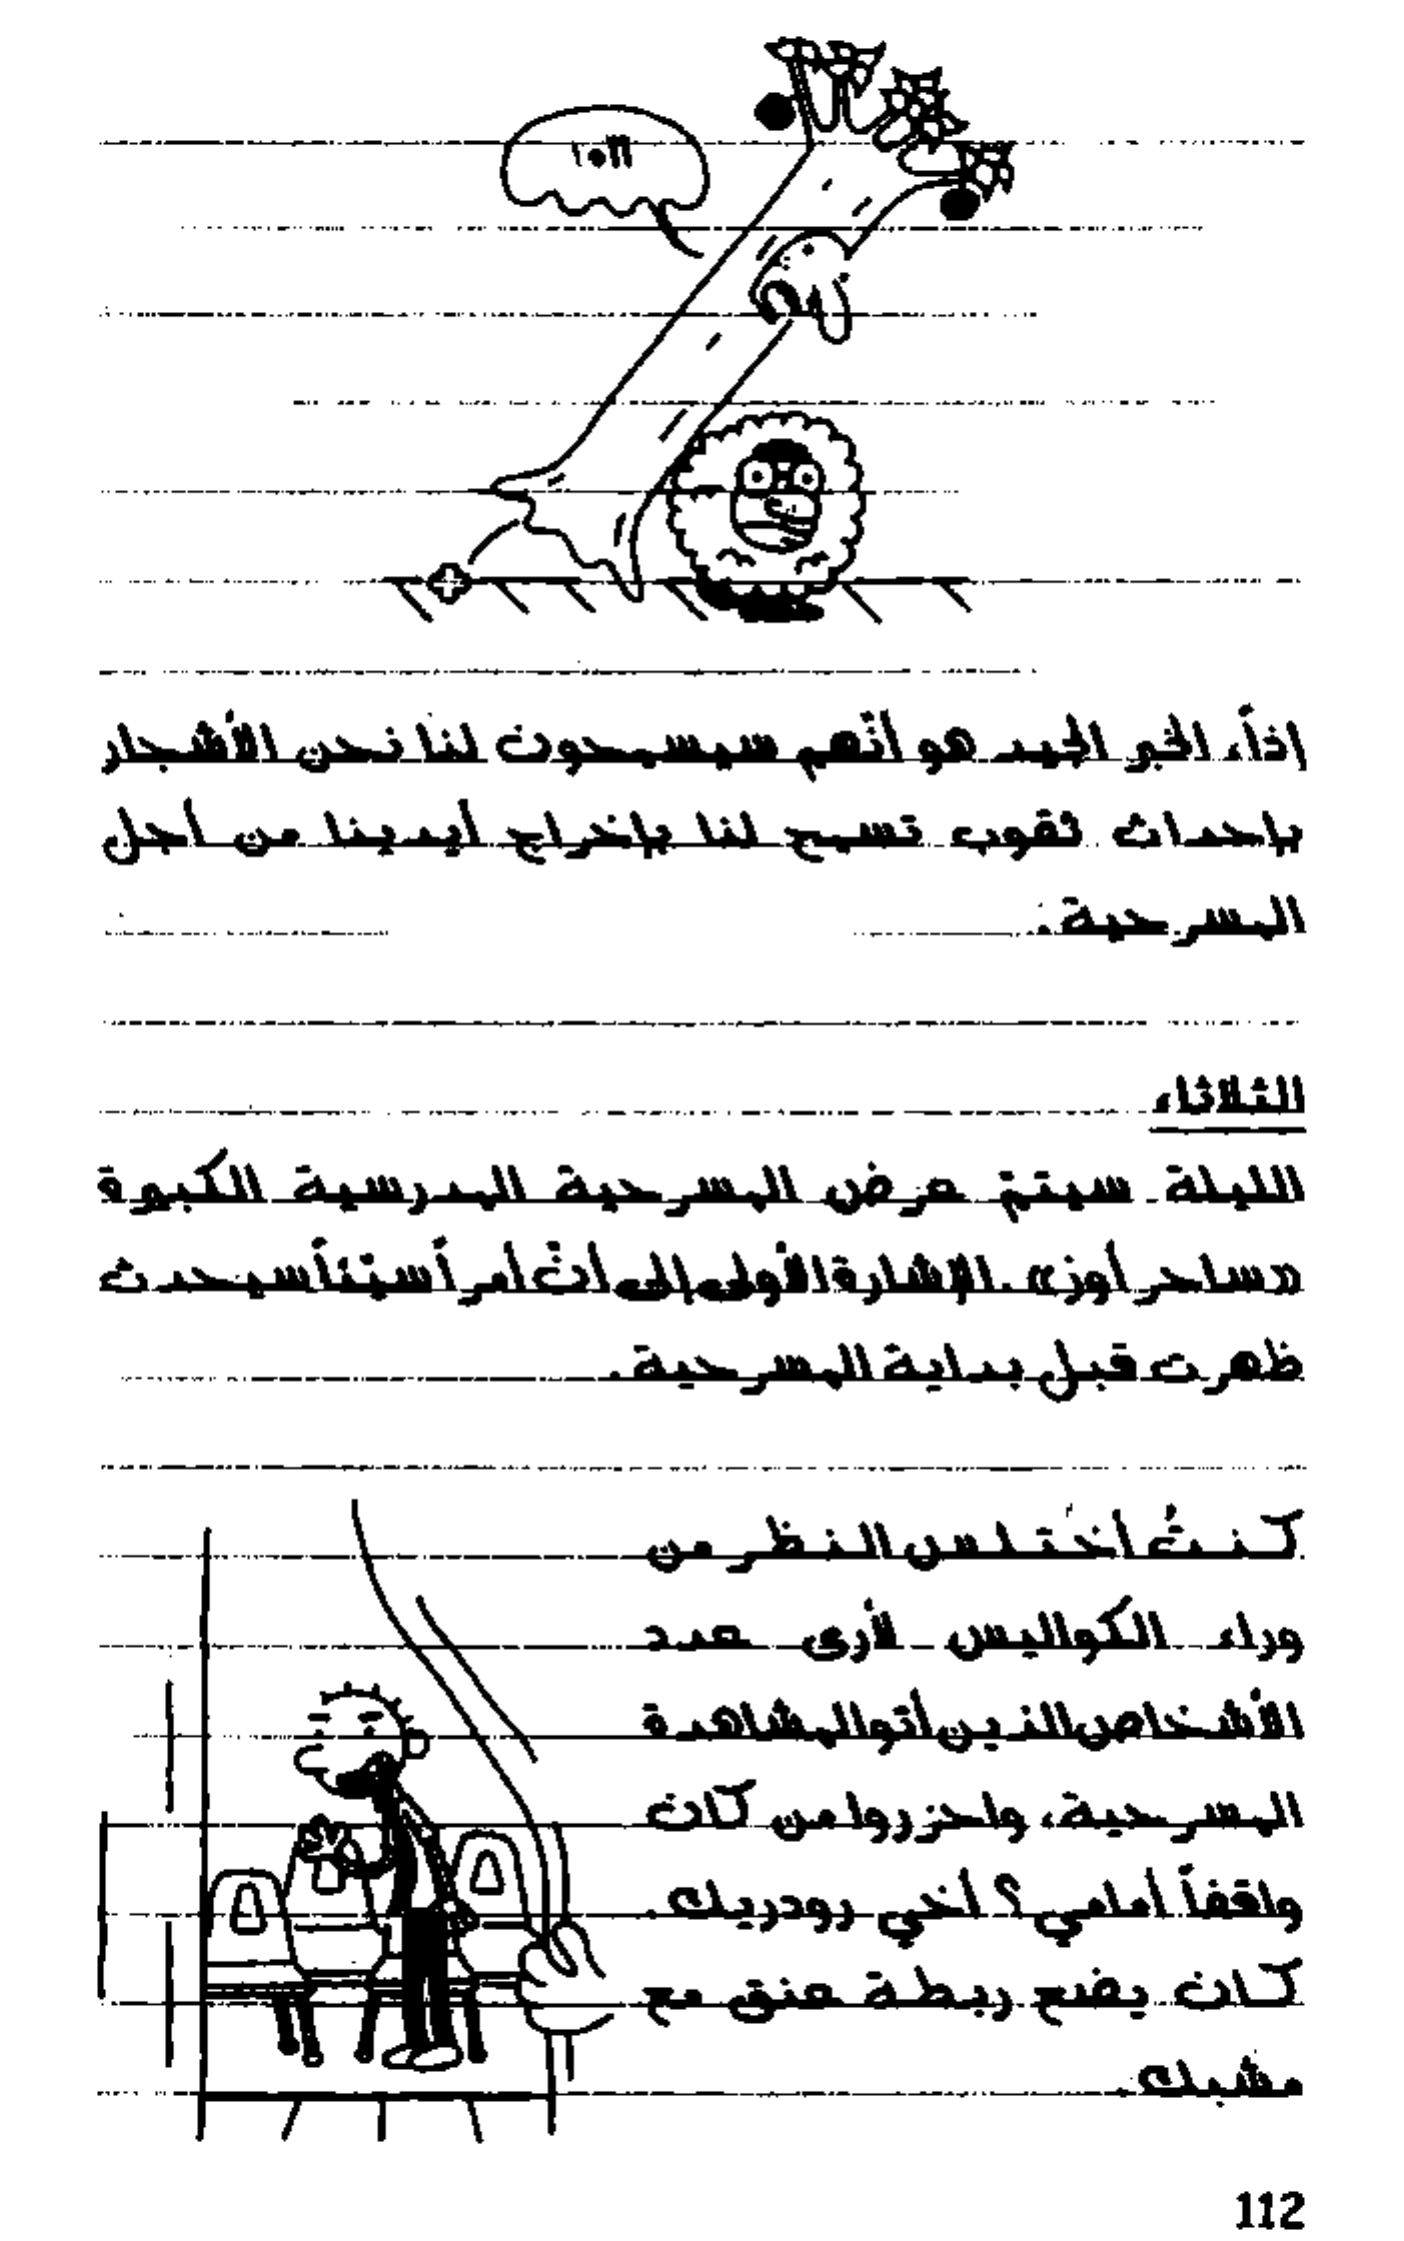 إذاً، الخبر الجيد هو أنّهم سيسمحون لنا نحن الأشجار
بإحداث ثقوب تسمح لنا بإخراج أيدينا من أجل
المسرحية.
الثلاثاء
الليلة سيتمّ عرض المسرحية المدرسية الكبيرة
«ساحر أوز». الإشارة الأولى إلى أنّ أمراً سيّئاً سيحدث
ظهرت قبل بداية المسرحية.
كنتُ أختلس النظر من
وراء الكواليس لأرى عدد
الأشخاص الذين أتوا لمشاهدة
المسرحية، واحزروا من كان
واقفاً أمامي؟ أخي رودريك.
كان يضع ربطة عنق مع
مشبك.
112